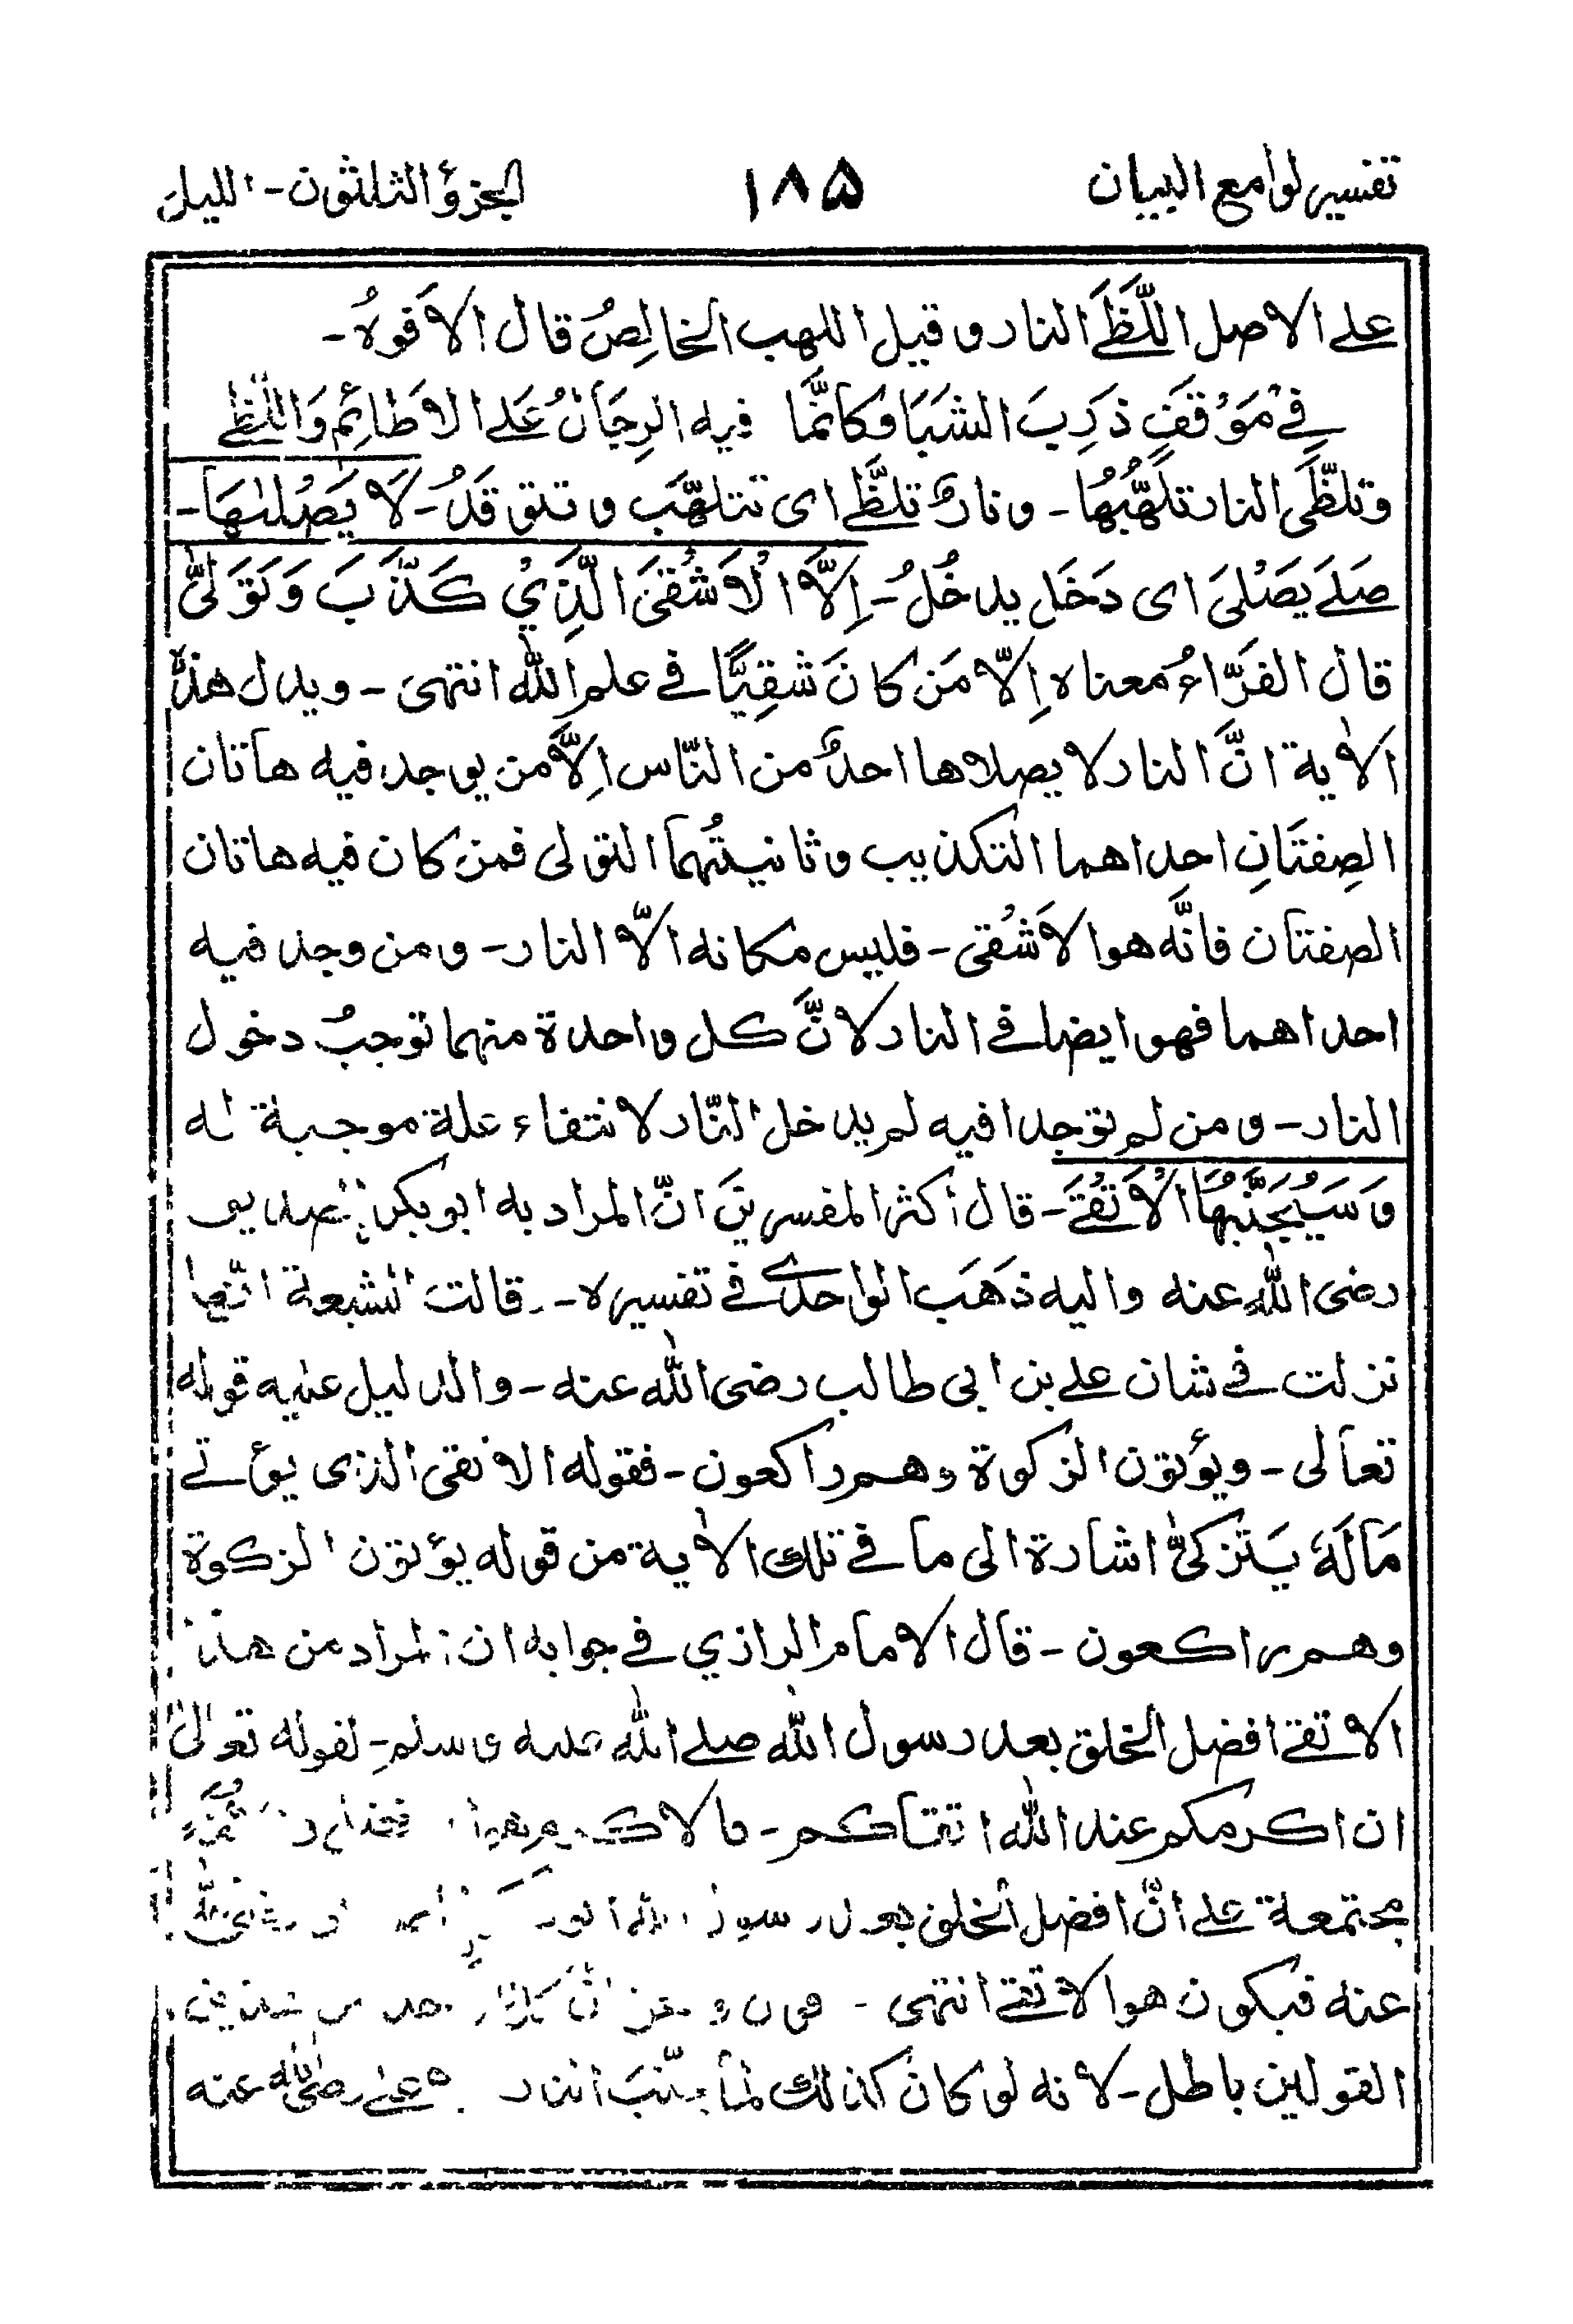 تفسير لوامع البيان ١٨٥ الجزؤ الثلثون - الليل
على الاصل اللَّظَى النار و قيل اللهب الخالِصُ قال الافوهُ -
فِيْ مَوْقَفٍ ذَرِبَ الشَبَا وكانَّما فيه الرِجَالُ عَلى الاَطَائِمِ وَاللَّظى
وتلظّى النار تلهّبُها - ونارٌ تلظَّى اى تتلهّب و تتوقدُ - لَا يَصْلٰىهَا -
صَلَىَ يَصْلىَ اى دَخَل يدخُلُ - اِلَّا الْاَشْقَى الَّذِيْ كَذَّبَ وَتَوَلّىٰ
قال الفَرَّاءُ معناه اِلّا مَن كانَ شَقِيًّا في علم الله انتهى - ويدل هذه
الاٰية انَّ النار لا يصلاها احدٌ من النّاس اِلَّا من يوجد فيه هاتان
الصِفتَانِ احداهما التكذيب وثانيتُهما التولى فمن كان فيه هاتان
الصفتان فانَّه هو الاَشْقى - فليس مكانه الّا النار - ومن وجد فيه
احداهما فهو ايضا في النار لانَّ كل واحدة منهما توجبُ دخول
النار - ومن لم توجدا فيه لم يدخل النّار لانتفاء علة موجبة له
وَسَيُجَنَّبُهَا الْاَتْقَى - قال أكثر المفسرينَ انّ المراد به ابوبكر الصديق
رضى الله عنه واليه ذهَبَ الواحدى في تفسيره - قالت الشيعة انّها
نزلت في شان على بن ابى طالب رضى الله عنه - والدليل عليه قوله
تعالى - ويؤتون الزكوة وهم راكعون - فقوله الاتقى الذى يؤتى
مَالَهٗ يَتَزكىّٰ اشارة الى ما في تلك الاٰية من قوله يؤتون الزكوة
وهم راكعون - قال الامام الرازي في جوابه ان المراد من هذا
الاتقى افضل الخلق بعد رسول الله صلى الله عليه وسلم - لقوله تعالىٰ
ان اكرمكم عند الله اتقاكم - والاكرم هو
مجتمعة على انّ افضل الخلق بعد رسول الله
عنه فيكون هو الاتقى انتهى -
القولين باطل - لانه لو كان كذلك لما يجنّب النار على رضى الله عنه